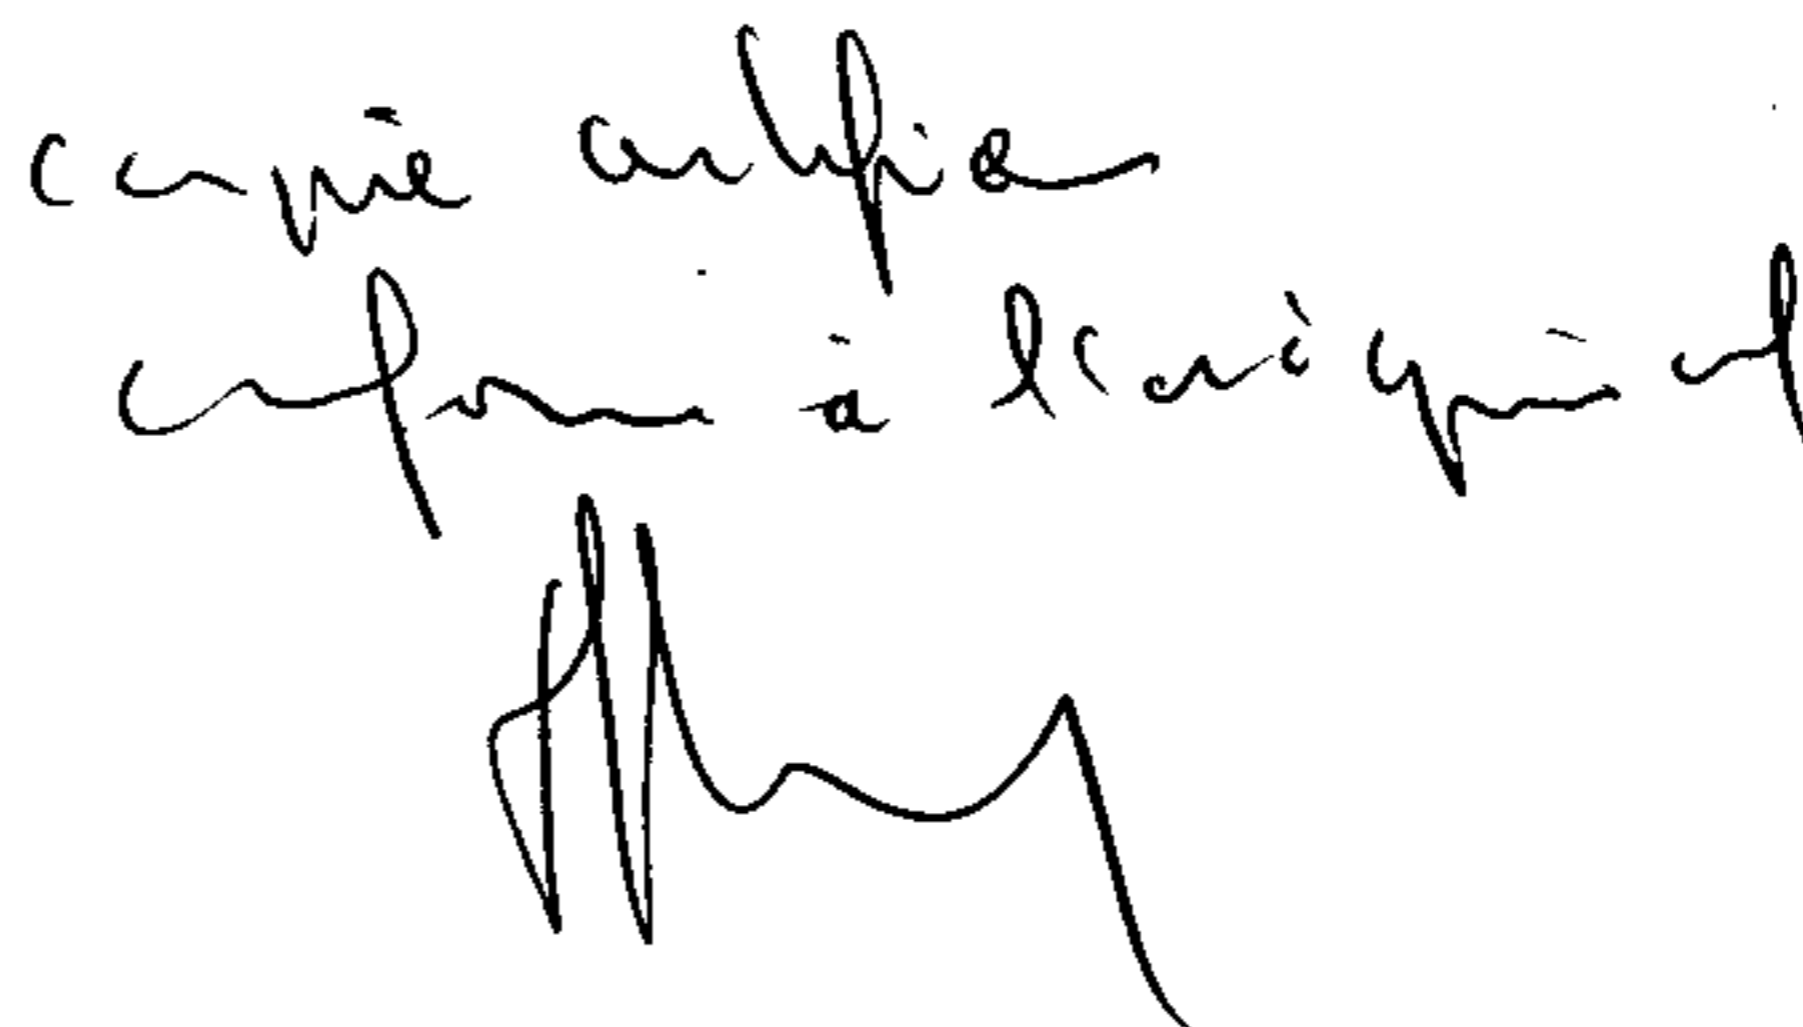 copie certifiée
conforme à l'original